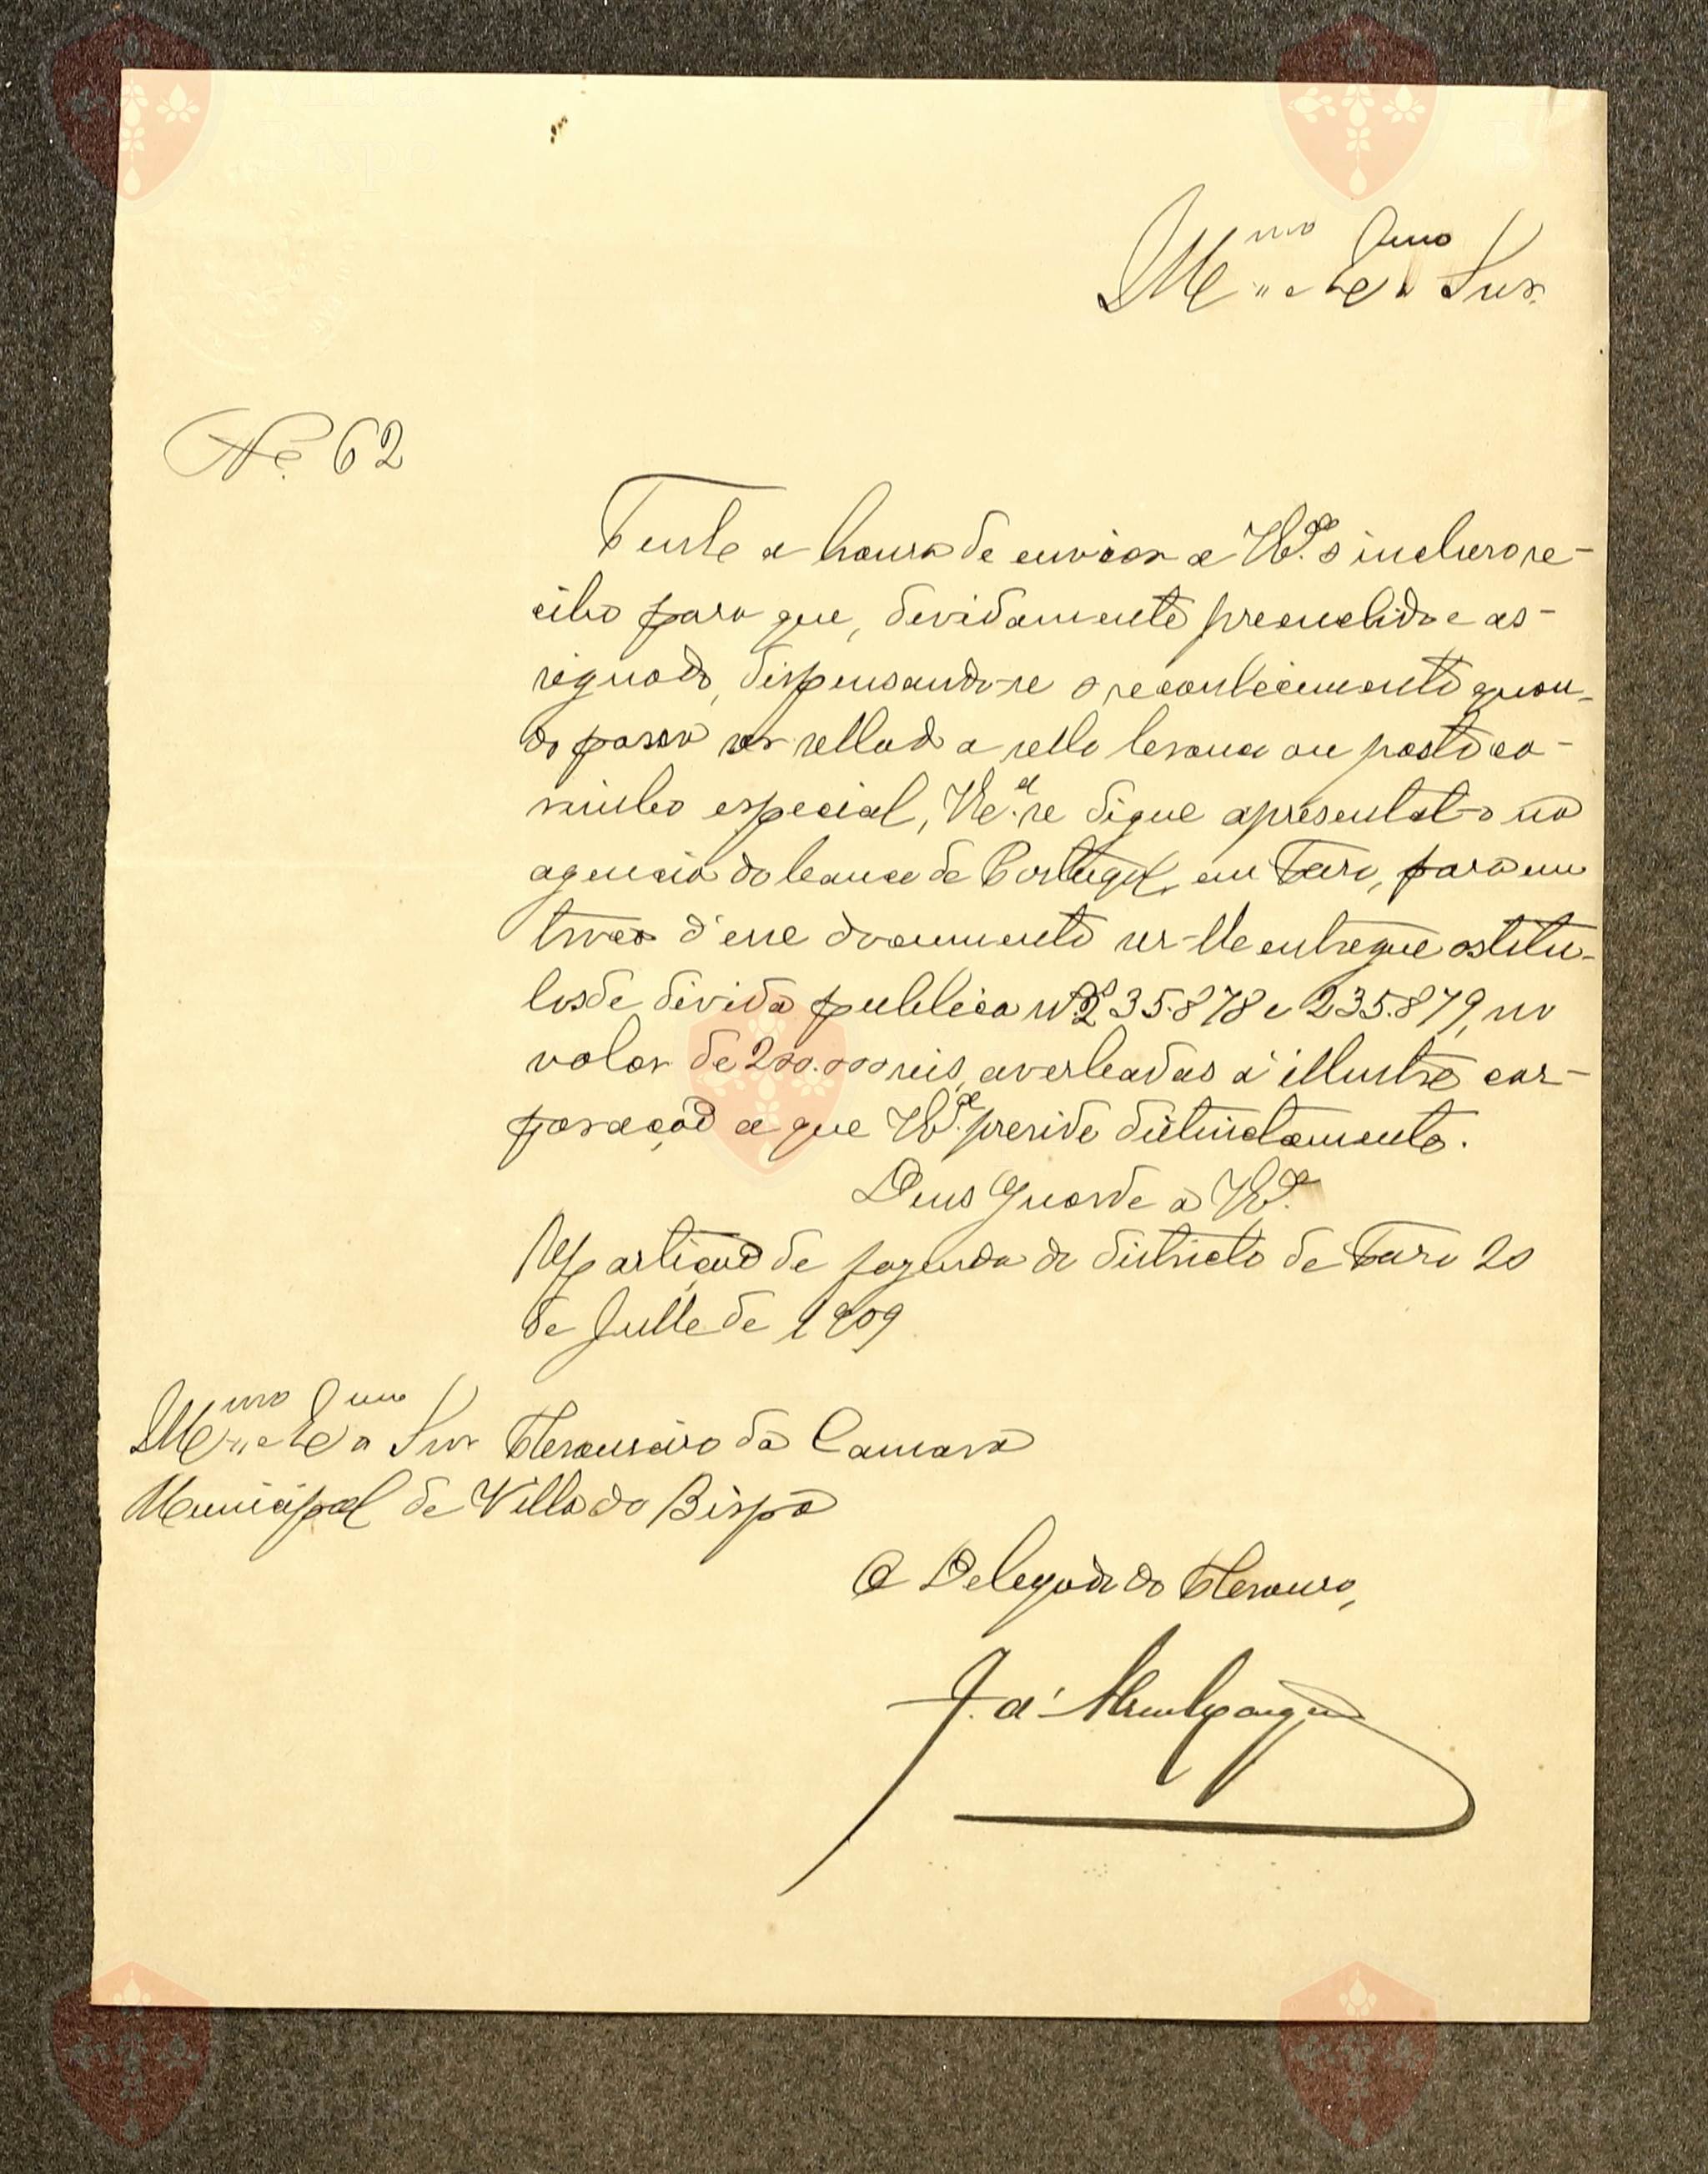 Ill.mo e Ex.mo Snr.
N.º 62
Tenho a honra de enviar a V.Ex.ª o incluso re-
cibo para que, devidamente preenchido e as-
signado, dispensando-se o reconhecimento quan-
do possa ser sellado a sello branco ou posto ca-
rimbo especial, V.Ex.ª se digne apresental-o na
agencia do banco de Portugal, em Faro, para em
troca d'esse documento ser-lhe entregue os titu-
los de divida publica n.os 235.878 e 235.879, no
valor de 200.000 reis, averbadas á illustre cor-
poração a que V.Ex.ª preside distinctamente.
Deus Guarde a V.Ex.ª
Repartição de fazenda do districto de Faro 20
de Julho de 1909
Ill.mo e Ex.mo Snr. Thesoureiro da Camara
Municipal de Villa do Bispo
O Delegado do Thesouro,
J. d'